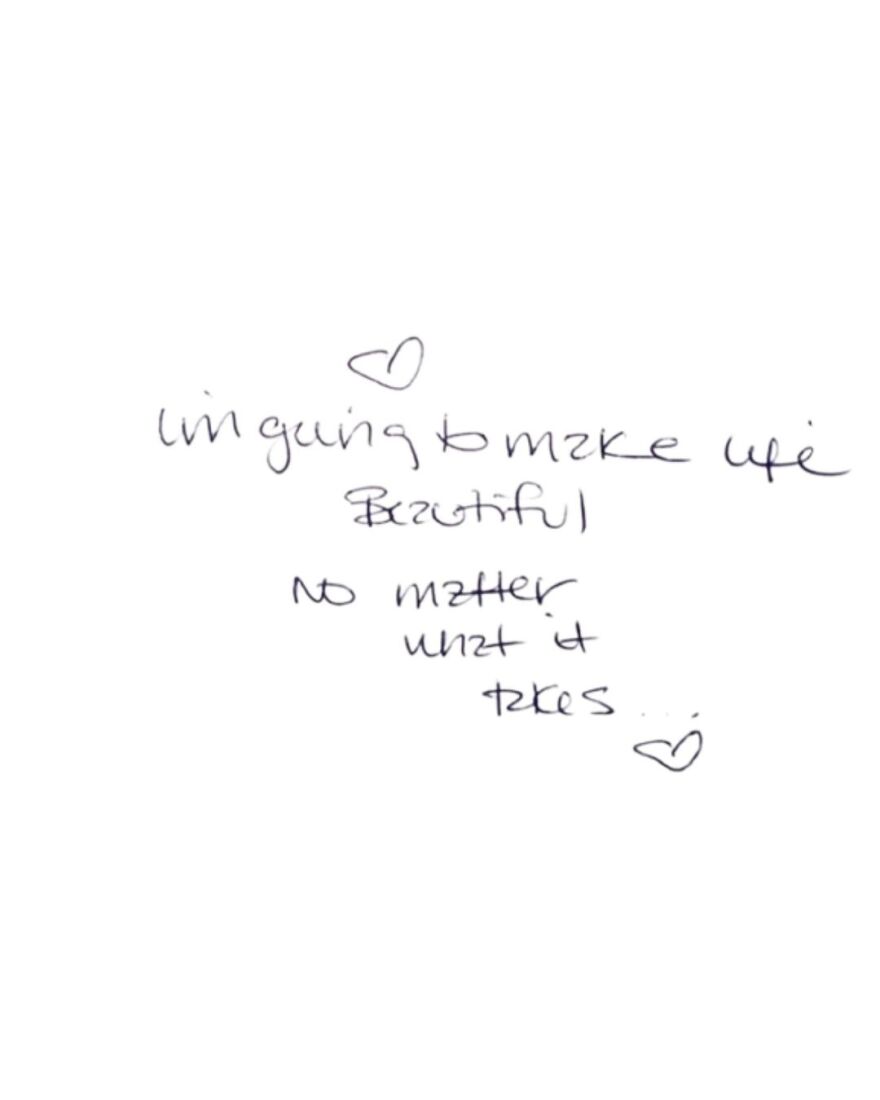 im going to make life
Beautiful
No matter
what it
takes...